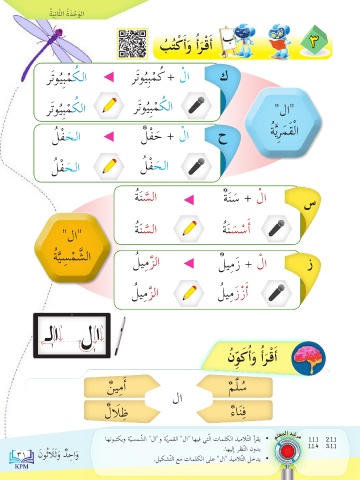 الوَحْدَةُ الثَّانِيَةُ
٣ أَقْرَأُ وَأَكْتُبُ
"ال" الْقَمَرِيَّةُ
ك الْ + كُمْبِيُوتَر الكُمْبِيُوتَر
الْكُمْبِيُوتَر الْكُمْبِيُوتَر
ح الْ + حَفْلٌ الحَفْلُ
الْحَفْلُ الْحَفْلُ
"ال" الشَّمْسِيَّةُ
س الْ + سَنَةٌ السَّنَةُ
أَسْسَنَةُ السَّنَةُ
ز الْ + زَمِيلٌ الزَّمِيلُ
أَزْزَمِيلُ الزَّمِيلُ
ال الـ
أَقْرَأُ وَأُكَوِّنُ
سُلَّمٌ ال أَمِينٌ
فِنَاءٌ ظِلَالٌ
1.1.1 2.1.1
1.1.4 3.1.1
يقرأ التلاميذ الكلمات التي فيها "ال" القمرية و"ال" الشمسية ويكتبونها بدون النظر إليها.
يدخل التلاميذ "ال" على الكلمات مع التشكيل.
وَاحِدٌ وَثَلَاثُونَ ٣١
KPM